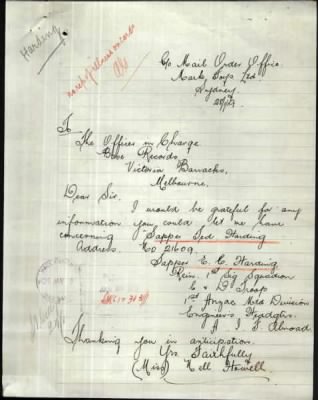 Harding
no rep of return on card
C/o Mail Order Office
Mark Foys Ltd
Sydney
To
The Officer in Charge
Base Records
Victoria Barracks,
Melbourne,
Dear Sir.
I would be grateful for any
information you could let me have
concerning Sapper Ted Harding
Address. No 21609.
Sapper E. C. Harding
1st Sig Squadron
C & D Troop
1st Anzac Mtd Division
Engineers Headqtrs
A I F Abroad.
Thanking you in anticipation.
Yrs. Faithfully
(Miss) Nell Howell